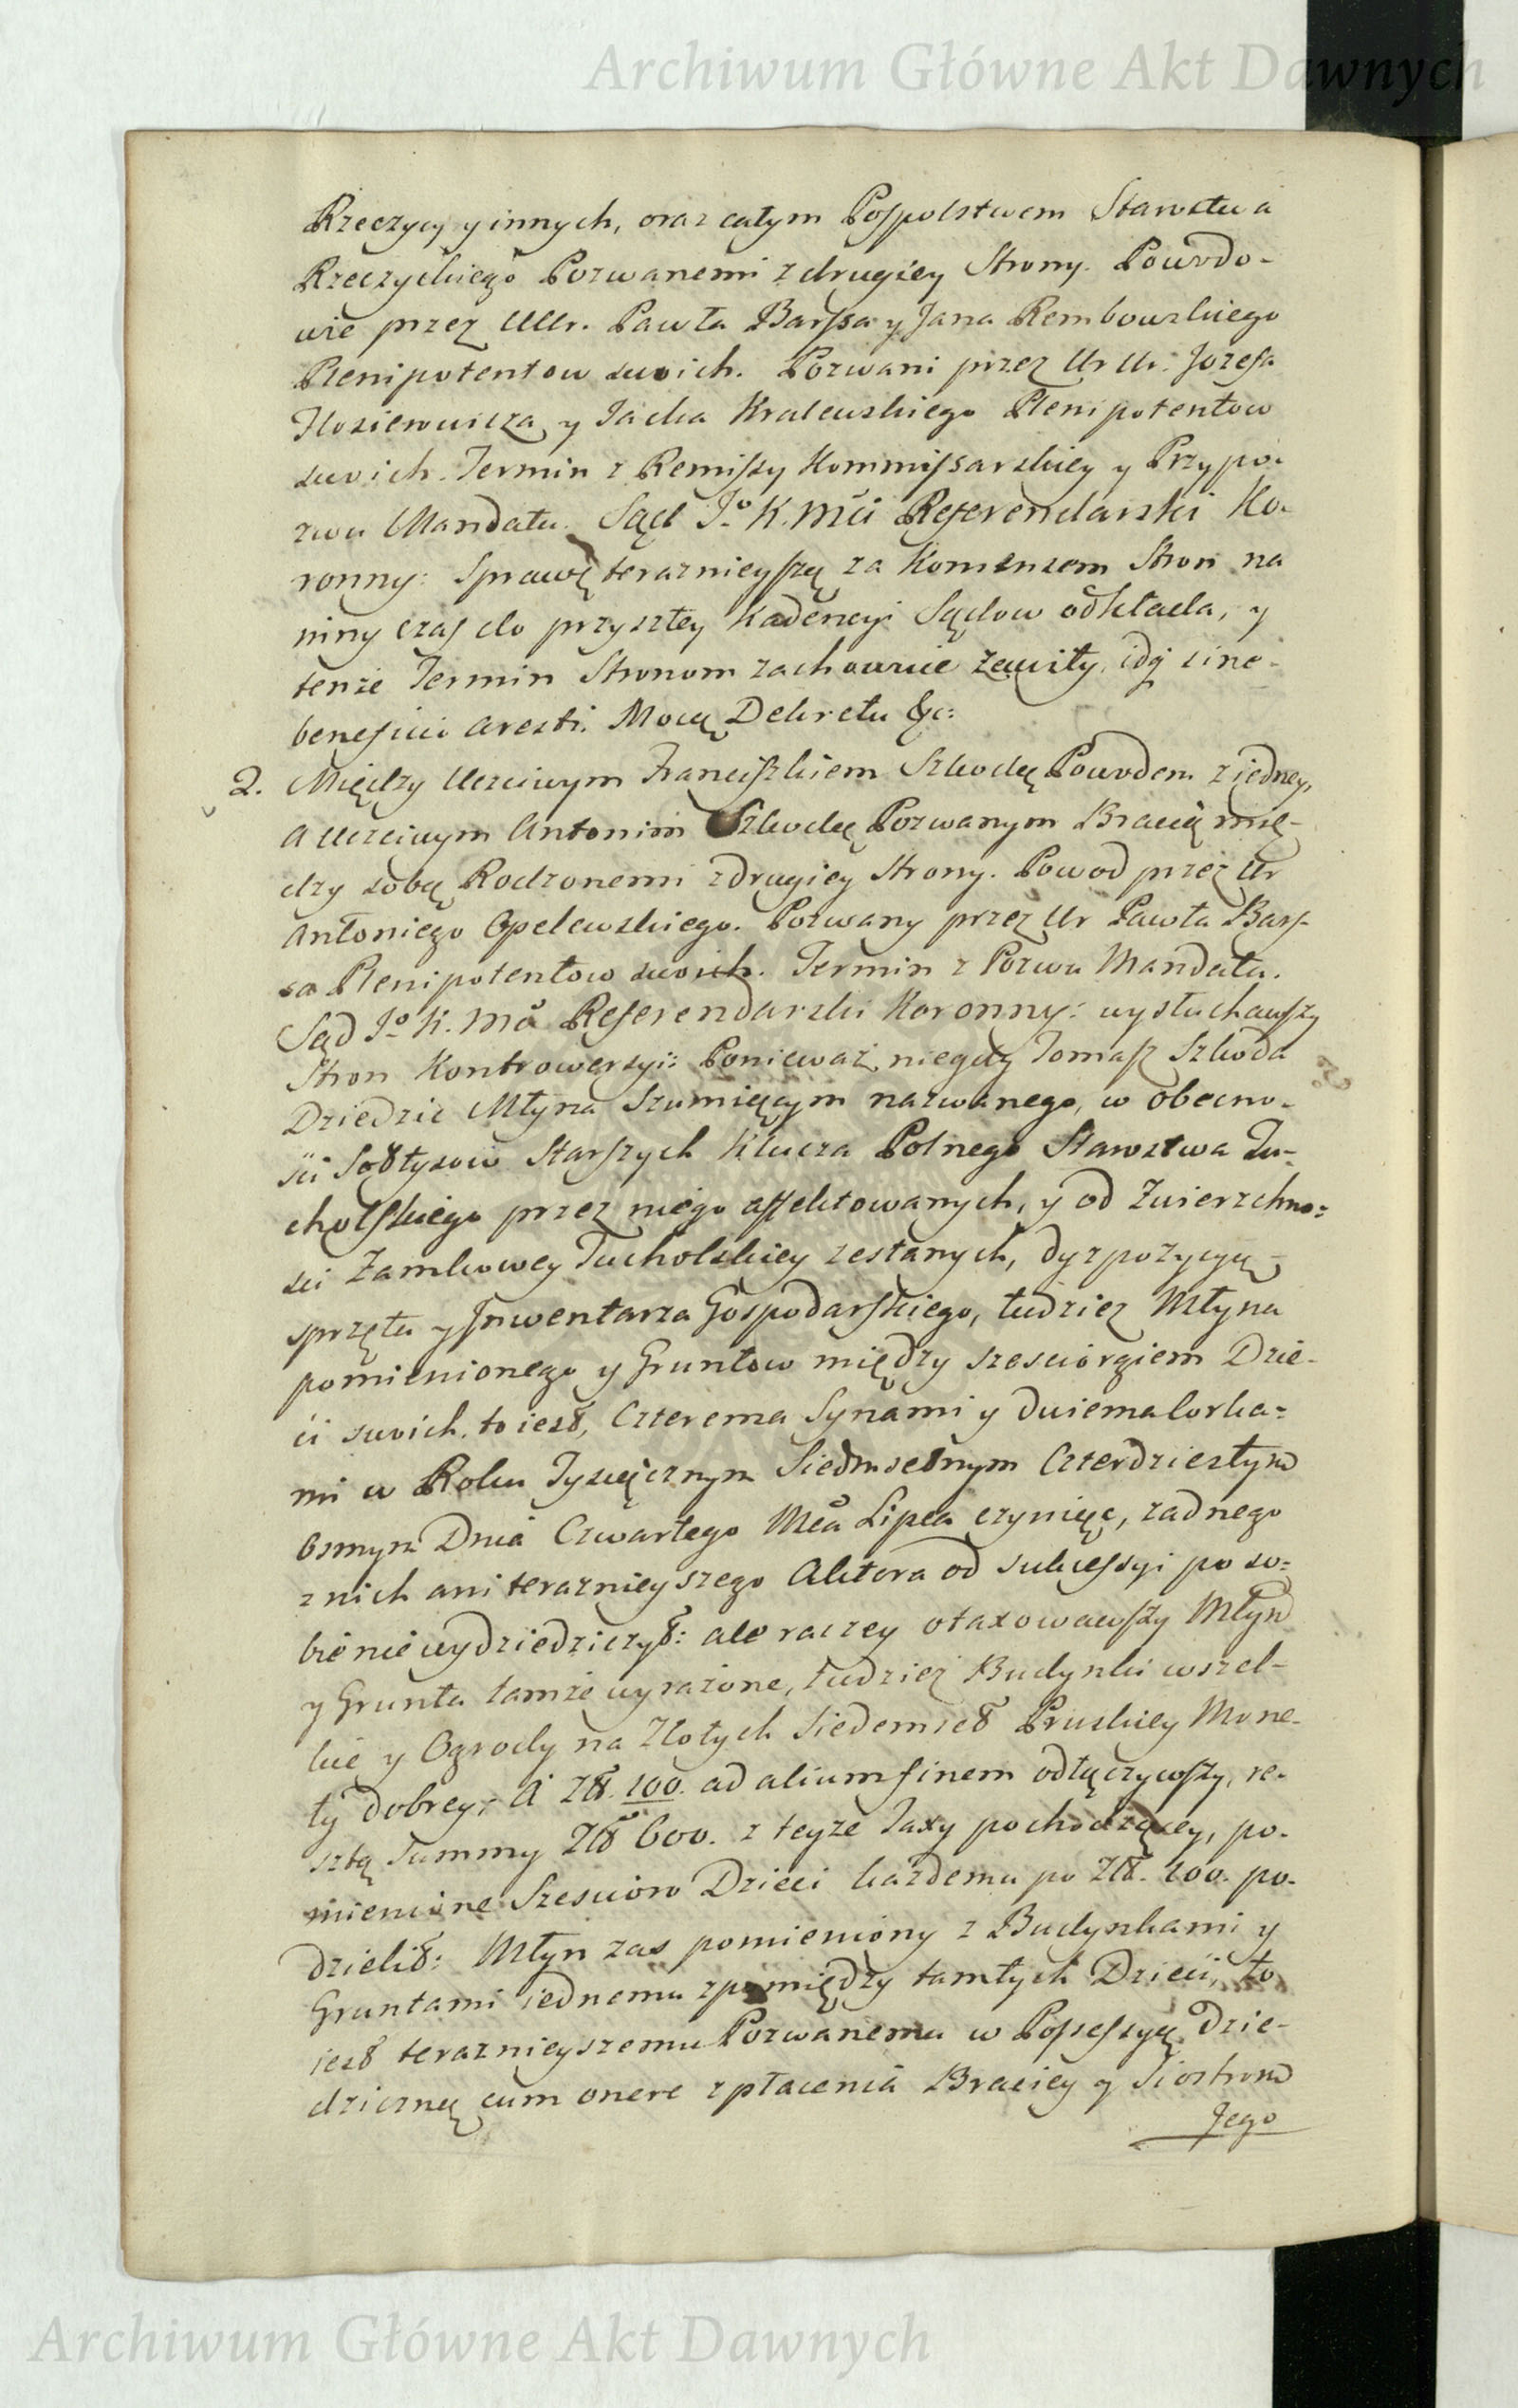 Archiwum Główne Akt Dawnych
Rzeczycy y innych, oraz całym Pospolstwem Starostwa
Rzeczyckiego Pozwanemi z drugiey Strony. Powodo-
wie przez UUr. Pawła Barssa y Jana Rembowskiego
Plenipotentow swoich. Pozwani przez Ur Ur. Jozefa
Kosierowicza y Jacka Kralewskiego Plenipotentow
swoich. Termin z Remissy Kommissarskiey y Przypo-
zwu Mandatu. Sąd Jo K. Mci Referendarski Ko-
ronny: Sprawę teraznieyszą za Konsensem Stron na
niny czas do przyszłey Kadencyi Sądow odkłada, y
tenże Termin Stronom zachowuie zawity, idq sine
beneficii aresti. Mocą Dekretu &c:
2. Między Uczciwym Franciszkiem Szkodą Powodem z iedney,
a Uczciwym Antonim Szkodą Pozwanym Bracią mię-
dzy sobą Rodzonemi z drugiey strony. Powod przez Ur
Antoniego Opelewskiego. Pozwany przez Ur Pawła Bars-
sa Plenipotentow swoich. Termin z Pozwu Mandatu.
Sąd Jo K. Mci Referendarski Koronny: wysłuchawszy
Stron Kontrowersyi: Ponieważ niegdy Tomasz Szkoda
Dziedzic Młyna Szumiącym nazwanego, w obecno-
ści Sołtysow Starszych Klucza Polnego Starostwa Tu-
cholskiego przez niego affektowanych, y od Zwierzchno=
sci Zamkowey Tucholskiey zesłanych, dyzpozycyą
sprzętu y Inwentarza Gospodarskiego, tudziez Młyna
pomienionego y Gruntow między szesciorgiem Dzie-
ci swoich, to iest, Czterema Synami y dwiema Corka=
mi w Roku Tysiącznym Siedmsetnym Czterdziestym
osmym Dnia Czwartego Mca Lipca czyniąc, zadnego
z nich ani teraznieyszego Aktora od sukcessyi po so=
bie nie wydziedziczył: ale raczey otaxowawszy Młyn
y Grunta tamże wyrażone, tudzież Budynki wszel-
kie y Ogrody na Złotych siedemset Pruskiey Mone-
ty dobrey, a Zł. 100. ad alium finem odłączywszy, re-
sztą Summy Zł 600. z teyże Taxy pochodzącey, po-
mienione Szescioro Dzieci kazdemu po Zł. 100. po-
dzielił: Młyn zas pomieniony z Budynkami y
Gruntami iednemu z pomiędzy tamtych Dzieci, to
iest teraznieyszemu Pozwanemu w Possessyą Dzie-
dziczną cum onere zpłacenia Braciey y Siostrom
Jego
Archiwum Główne Akt Dawnych